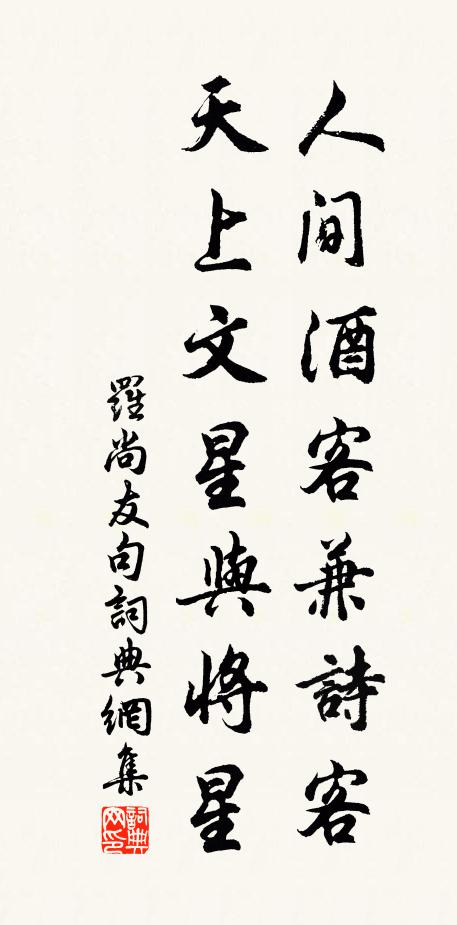 人间酒客兼詩客
天上文星與將星
羅尚友句詞典網集
詞典网印